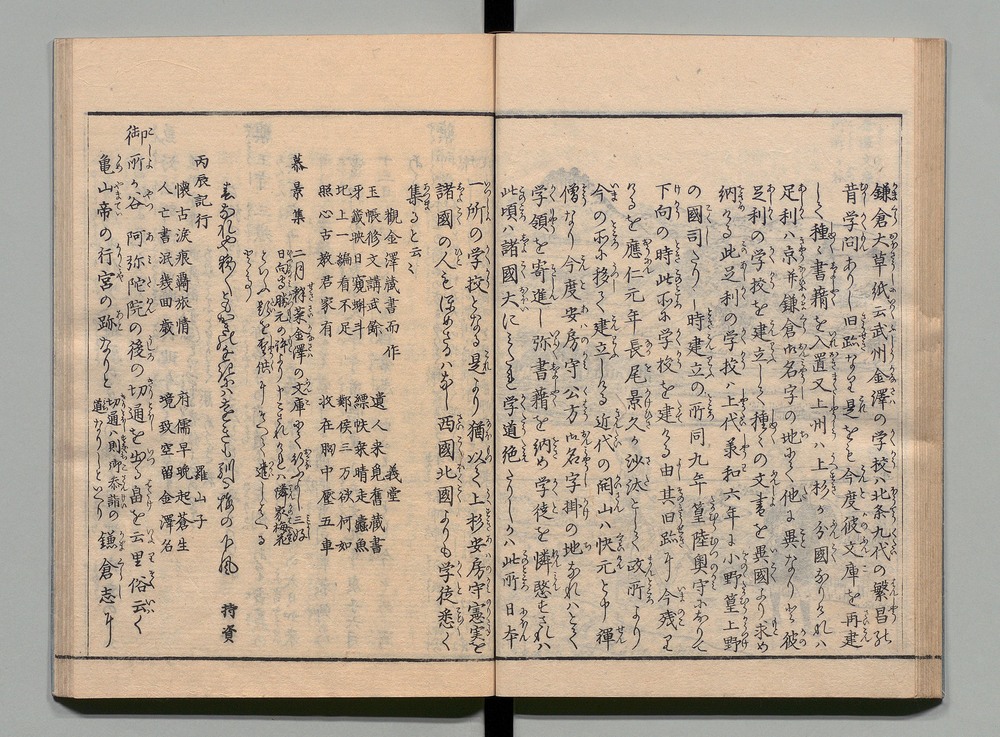 鎌倉大草紙云武州金澤の学校ハ北条九代の繁昌の
昔学問ありし旧跡なり是をも今度彼文庫を再建
して種々書籍を入置又上州ハ上杉が分國なりけれハ
足利ハ京并鎌倉御名字の地にて他に異なりと彼
足利の学校を建立して種々の文書を異國より求め
納ける此足利の学校ハ上代承和六年に小野篁上野
の國司たりし時建立の所同九年篁陸奥守になりて
下向の時此所に学校を建る由其旧跡于今残り
けるを應仁元年長尾景久が沙汰として政所より
今の所に移して建立しける近代の開山ハ快元と申禅
僧なり今度安房守公方御名字掛の地なれハとて
学領を寄進し弥書籍を納め学徒を憐愍せされハ
此頃ハ諸國大にみだれ学道絶たりしかハ此所日本
一所の学校となる是より猶以て上杉安房守憲実を
諸國の人もほめざるハなし西國北國よりも学徒悉く
集ると云々
觀金澤藏書而作 義堂
玉帳修文講武餘 遺人来覓舊藏書
牙籤映日窺蝌斗 縹帙乗晴走蠧魚
圯上一編看不足 鄴侯三万欲何如
照心古教君家有 收在胸中壓五車
慕景集 二月
持資
丙辰記行 羅山子
懐古涙痕羇旅情 府儒早晩起蒼生
人亡書泯幾回歳 境致空留金澤名
御所が谷 阿弥陀院の後の切通を出る畠を云里俗云く
亀山帝の行宮の跡なりと 切通ハ則御参詣の道なりしといへり 鎌倉志に